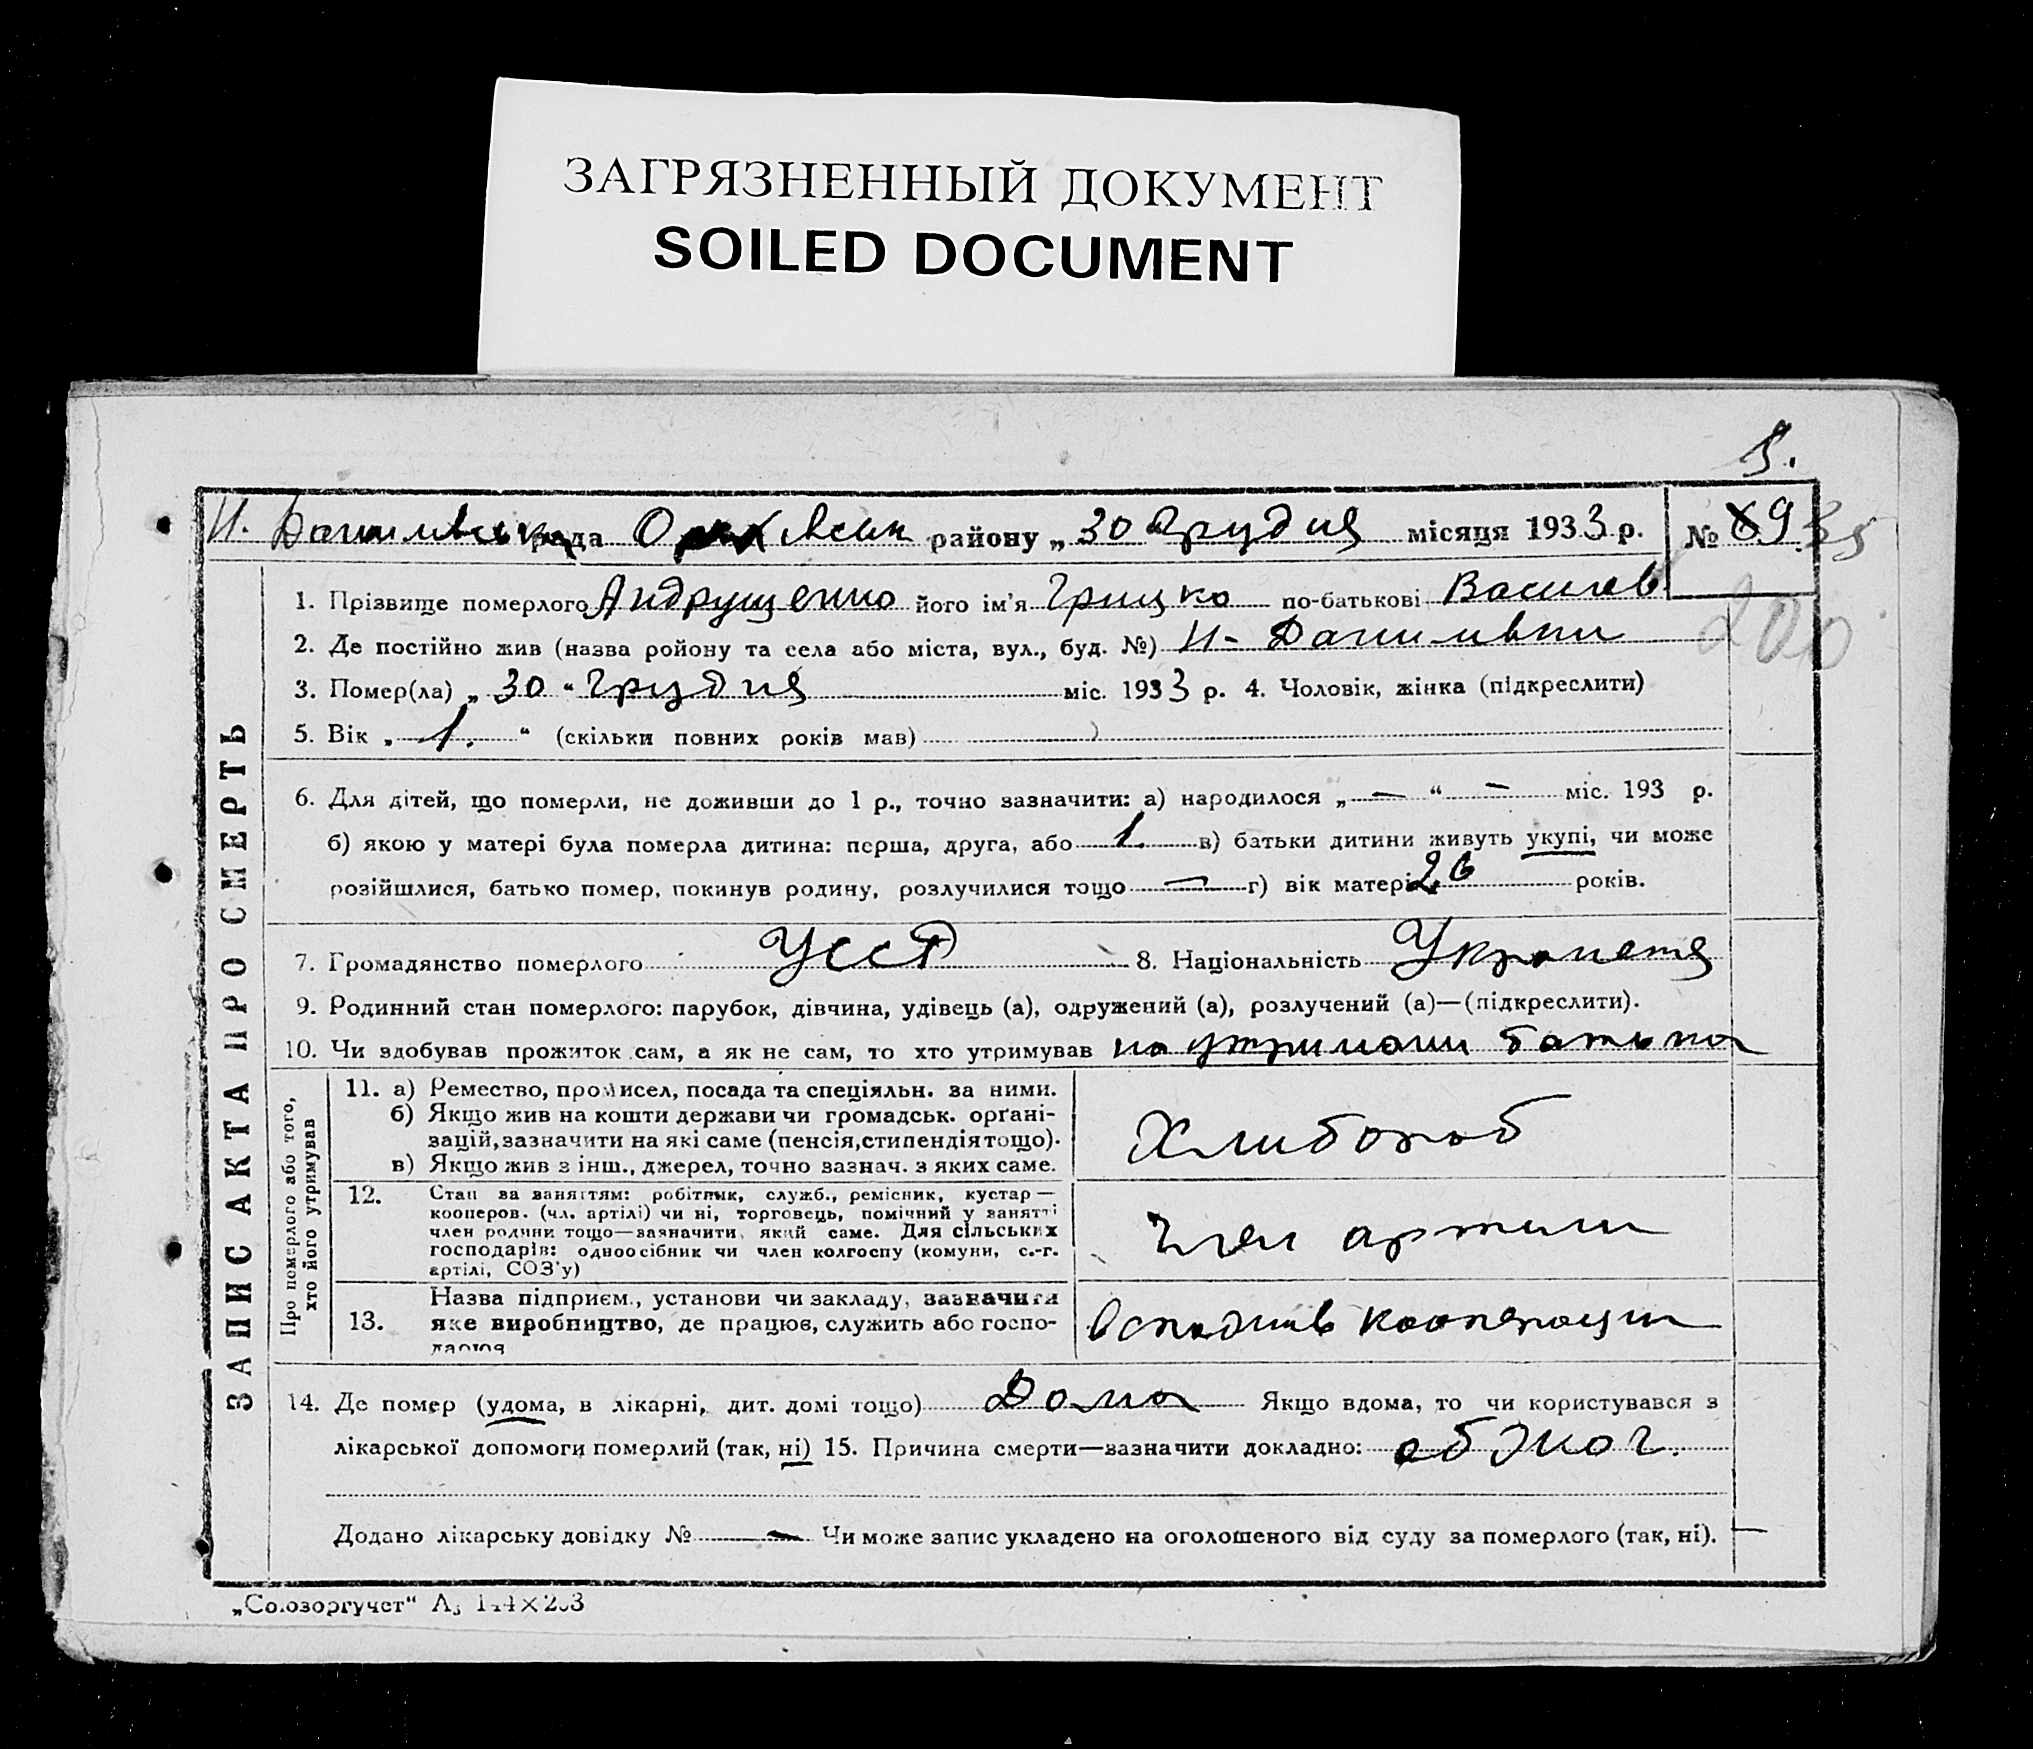 ЗАГРЯЗНЕННЫЙ ДОКУМЕНТ
SOILED DOCUMENT
рада району „ 30 Грудня місяця 1933 р. № 69
1. Прізвище померлого Андрущенко його ім’я Грицко по-батькові Василев.
2. Де постійно жив (назва ройону та села або міста, вул., буд. №) Н- Данилівки
3. Помер(ла) „ 30 “ Грудня міс. 1933 р. 4. Чоловік, жінка (підкреслити)
5. Вік „ 1. “ (скільки повних років мав)
6. Для дітей, що померли, не доживши до 1 р., точно зазначити: а) народилося „ — “ — міс. 193 р.
б) якою у матері була померла дитина: перша, друга, або 1. в) батьки дитини живуть укупі, чи може
розійшлися, батько помер, покинув родину, розлучилися тощо — г) вік матері 26 років.
7. Громадянство померлого УССР 8. Національність
9. Родинний стан померлого: парубок, дівчина, удівець (а), одружений (а), розлучений (а)—(підкреслити).
10. Чи здобував прожиток сам, а як не сам, то хто утримував на утримани батька
ЗАПИС АКТА ПРО СМЕРТЬ
Про померлого або того, хто його утримував
11. а) Ремество, промисел, посада та спеціяльн. за ними.
б) Якщо жив на кошти держави чи громадськ. орґані-
зацій, зазначити на які саме (пенсія, стипендія тощо).
в) Якщо жив з інш., джерел, точно зазнач. з яких саме.
Хлибороб
12. Стан за заняттям: робітник, служб., ремісник, кустар —
кооперов. (чл. артілі) чи ні, торговець, помічний у занятті
член родини тощо—зазначити, який саме. Для сільських
господарів: одноосібник чи член колгоспу (комуни, с.-г.
артілі, СОЗ’у)
Член артили
13. Назва підприєм., установи чи закладу, зазначити
яке виробництво, де працює, служить або госпо-
дарює
кооперации
14. Де помер (удома, в лікарні, дит. домі тощо) Дома Якщо вдома, то чи користувався з
лікарської допомоги померлий (так, ні) 15. Причина смерти—зазначити докладно:
Додано лікарську довідку № — Чи може запис укладено на оголошеного від суду за померлого (так, ні). —
„Союзоргучет“